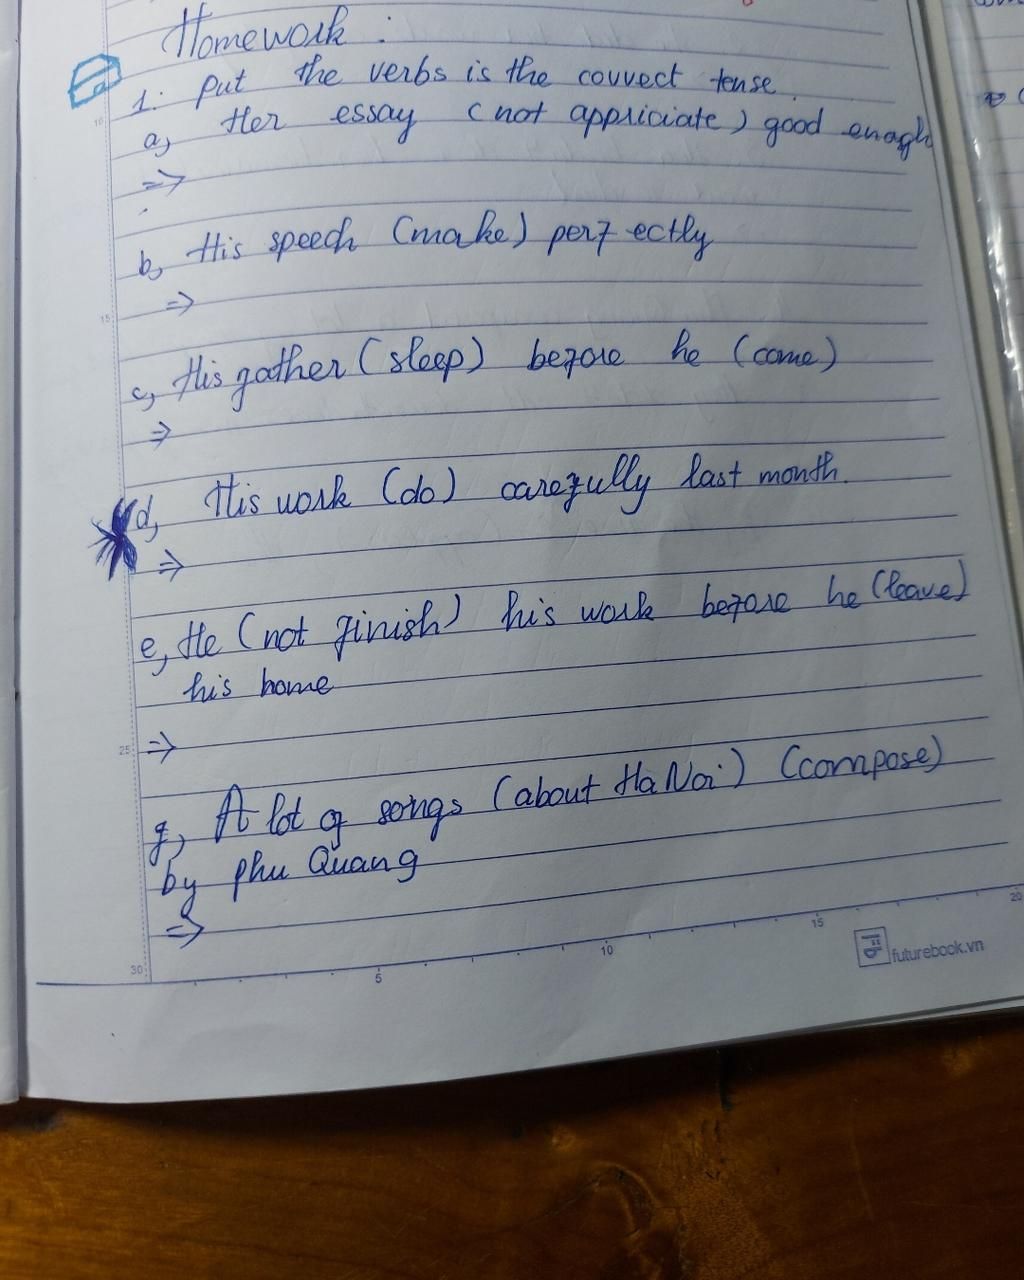 Homework :
1. Put the verbs is the correct tense.
a, Her essay (not appriciate) good enough
=>
b, His speech (make) perfectly
=>
c, His father (sleep) before he (come)
=>
d, His work (do) carefully last month.
=>
e, He (not finish) his work before he (leave)
his home
=>
f, A lot of songs (about Ha Noi) (compose)
by phu Quang
=>
10
15
25
30
5
10
15
20
futurebook.vn